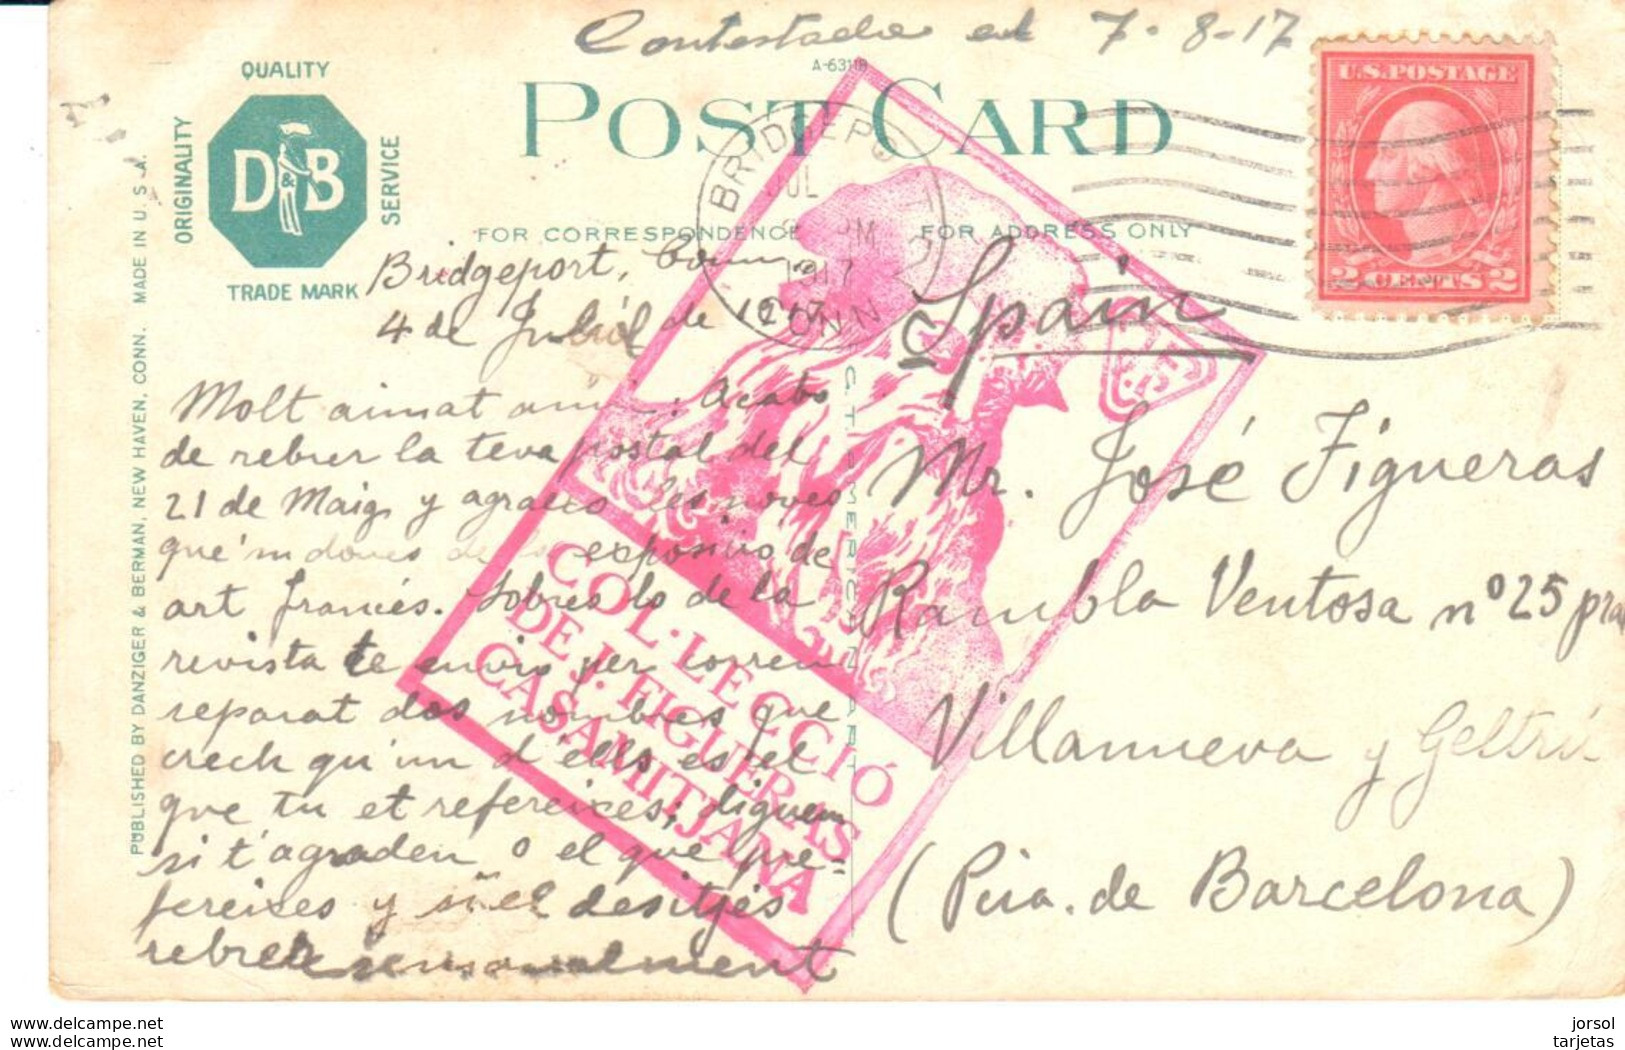 Contestada el 7-8-17
A-6311B
QUALITY
ORIGINALITY
D&B
SERVICE
TRADE MARK
POST CARD
FOR CORRESPONDENCE
FOR ADDRESS ONLY
BRIDGEPORT
JUL
PM
1917
CONN
U.S. POSTAGE
2 CENTS 2
PUBLISHED BY DANZIGER & BERMAN, NEW HAVEN, CONN. MADE IN U.S.A.
C.T. AMERICAN ART
Bridgeport, Conn
4 de Juliol de 1917
Molt aimat amic: Acabo
de rebrer la teva postal del
21 de Maig y agraeixo les noves
que'm dones de la exposicio de
art francés. Sobres lo de la
revista te envio per correu
separat dos nombres que
crech qu'un d'ells es el
que tu et refereixes; diguem
si t'agraden o el que pre-
fereixes y si el desitjes
rebrer mensualment
COL·LECCIÓ
DE J. FIGUERAS
CASAMITJANA
Spain
Mr. José Figueras
Rambla Ventosa nº 25 pral
Villanueva y Geltrú
(Pcia. de Barcelona)
www.delcampe.net
www.delcampe.net
jorsol
tarjetas